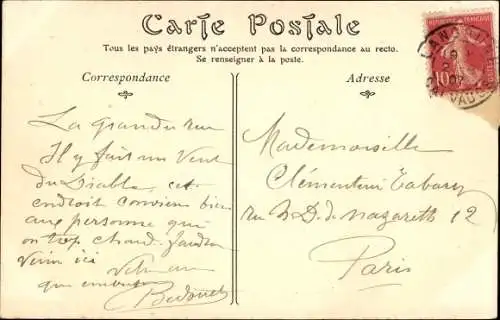 Carte Postale
Tous les pays étrangers n'acceptent pas la correspondance au recto.
Se renseigner à la poste.
Correspondance
Adresse
La grande rue
Il y fait un Vent
du Diable, cet
endroit convient bien
aux personne qui
on trop chaud. faudra
Venir ici
que
Mademoiselle
Clémentine Tabary
rue N.D. de nazareth 12
Paris
10